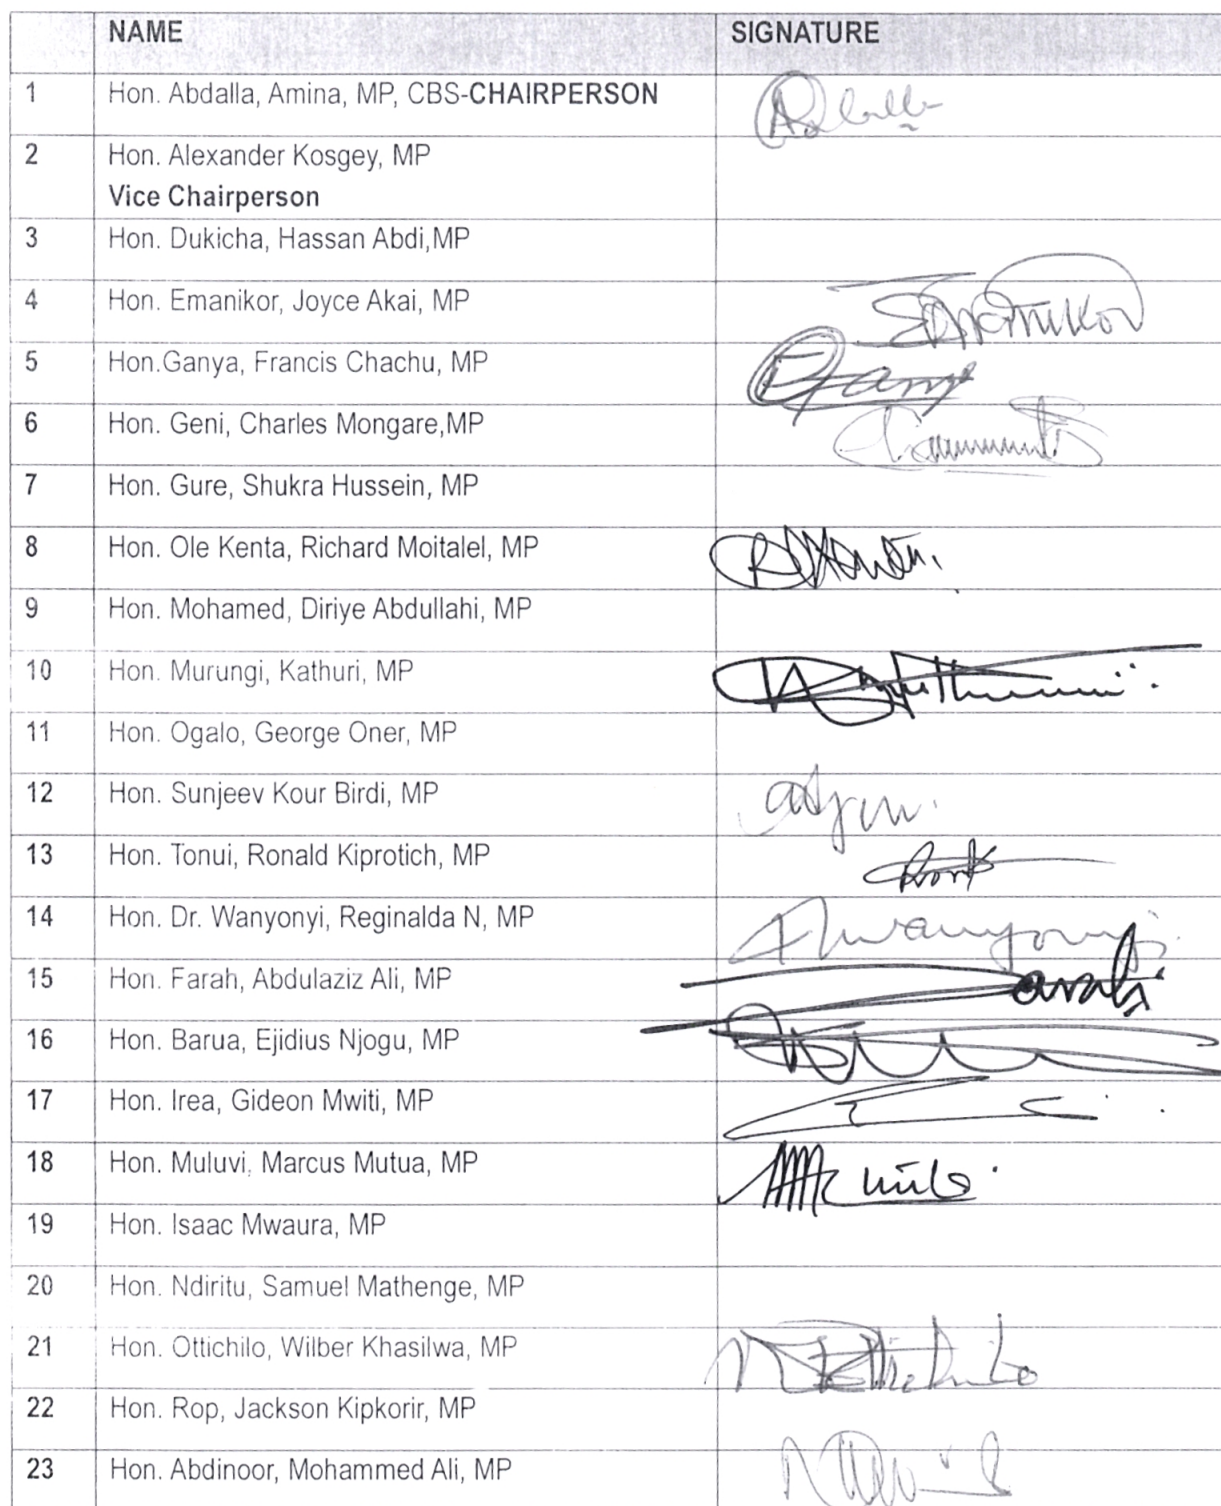 NAME SIGNATURE
1 Hon. Abdalla, Amina, MP, CBS-CHAIRPERSON
2 Hon. Alexander Kosgey, MP
Vice Chairperson
3 Hon. Dukicha, Hassan Abdi,MP
4 Hon. Emanikor, Joyce Akai, MP Emanikor
5 Hon.Ganya, Francis Chachu, MP
6 Hon. Geni, Charles Mongare,MP
7 Hon. Gure, Shukra Hussein, MP
8 Hon. Ole Kenta, Richard Moitalel, MP
9 Hon. Mohamed, Diriye Abdullahi, MP
10 Hon. Murungi, Kathuri, MP
11 Hon. Ogalo, George Oner, MP
12 Hon. Sunjeev Kour Birdi, MP
13 Hon. Tonui, Ronald Kiprotich, MP
14 Hon. Dr. Wanyonyi, Reginalda N, MP
15 Hon. Farah, Abdulaziz Ali, MP
16 Hon. Barua, Ejidius Njogu, MP
17 Hon. Irea, Gideon Mwiti, MP
18 Hon. Muluvi, Marcus Mutua, MP
19 Hon. Isaac Mwaura, MP
20 Hon. Ndiritu, Samuel Mathenge, MP
21 Hon. Ottichilo, Wilber Khasilwa, MP
22 Hon. Rop, Jackson Kipkorir, MP
23 Hon. Abdinoor, Mohammed Ali, MP